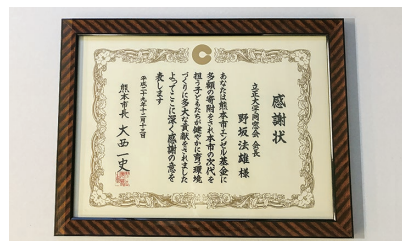 感謝状
立正大学同窓会 会長
野坂法雄 様
あなたは熊本市エンゼル基金に
多額の寄附をされ本市の次代を
担う子どもたちが健やかに育つ環境
づくりに多大な貢献をされました
よってここに深く感謝の意を
表します
平成二十九年十二月十二日
熊本市長 大西一史